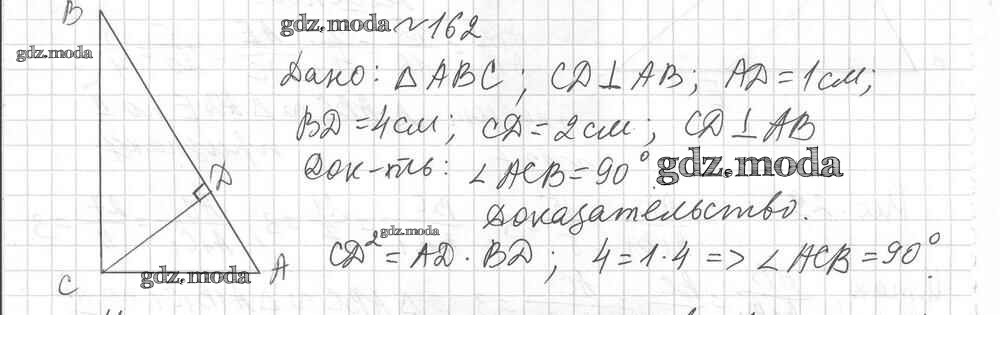 B
gdz.moda
gdz.moda №162
Дано: △ABC; CD⊥AB; AD=1см;
BD=4см; CD=2см; CD⊥AB
Док-ть: ∠ACB=90°.
gdz.moda
D
Доказательство.
gdz.moda
CD²=AD·BD; 4=1·4 => ∠ACB=90°.
C
gdz.moda
A